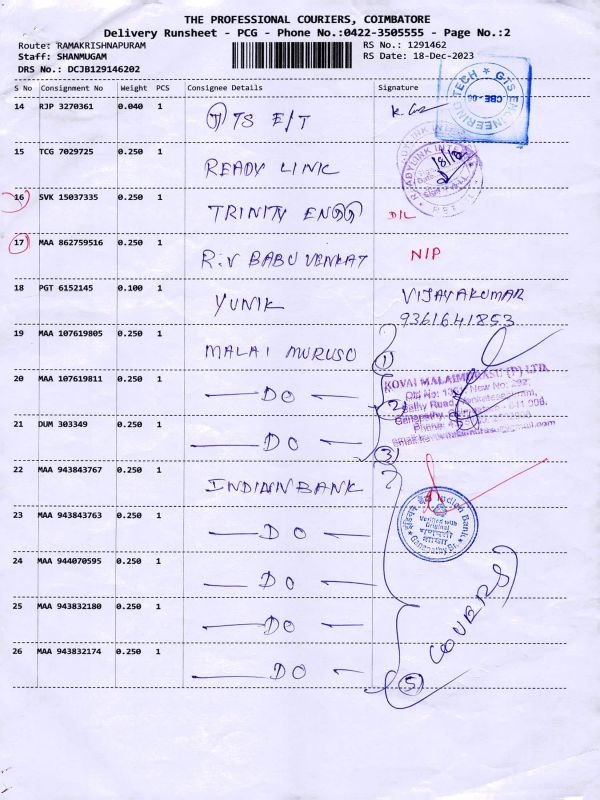 THE PROFESSIONAL COURIERS, COIMBATORE
Delivery Runsheet - PCG - Phone No.:0422-3505555 - Page No.:2
Route: RAMAKRISHNAPURAM
RS No.: 1291462
Staff: SHANMUGAM
RS Date: 18-Dec-2023
DRS No.: DCJB129146202
S No Consignment No Weight PCS Consignee Details Signature
14 RJP 3270361 0.040 1 GTS E/T
GTS ENGINEERING TECH
CBE - 06
15 TCG 7029725 0.250 1 READY LINK
READYLINK INTER
16 SVK 15037335 0.250 1 TRINITY ENGG D/L
17 MAA 862759516 0.250 1 R.V BABU VENKAT N/P
18 PGT 6152145 0.100 1 YUNIK VIJAYAKUMAR
9361641853
19 MAA 107619805 0.250 1 MALAI MURUSO 1
20 MAA 107619811 0.250 1 DO 2
KOVAI MALAIMURASU (P) LTD
21 DUM 303349 0.250 1 DO 3
22 MAA 943843767 0.250 1 INDIAN BANK
Indian Bank
Verified with
Original
Ganapathy Br.
23 MAA 943843763 0.250 1 DO
24 MAA 944070595 0.250 1 DO
25 MAA 943832180 0.250 1 DO
COVERS
26 MAA 943832174 0.250 1 DO 5